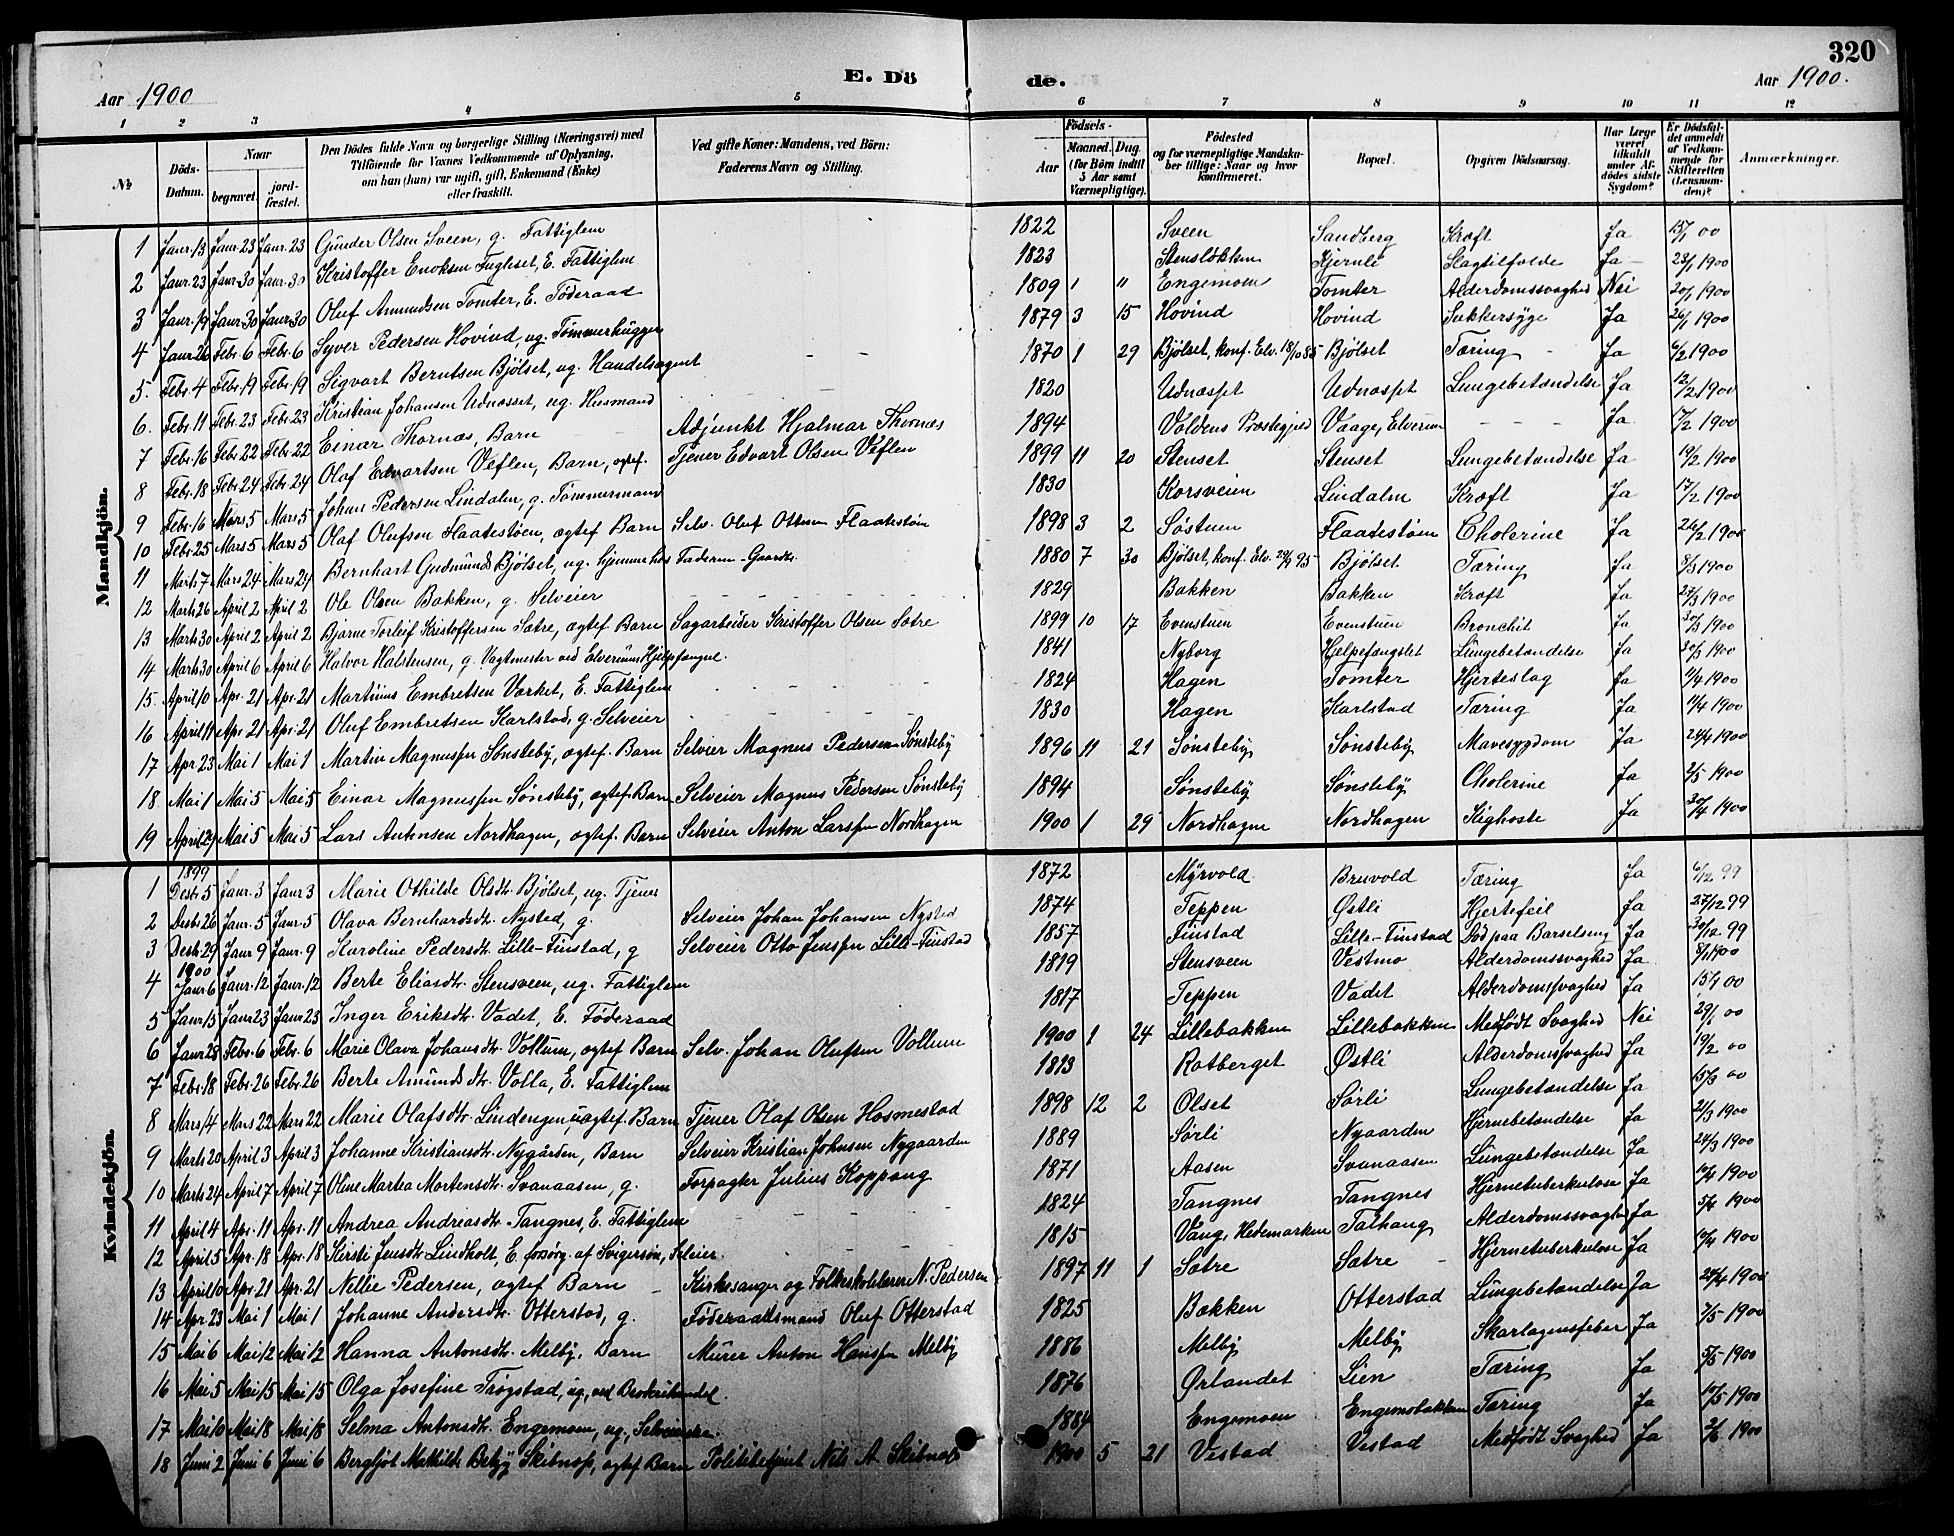 320
E. Dö de.
Aar 1900 Aar 1900.
1 2 3 4 5 6 7 8 9 10 11 12
No Döds-Datum. Naar begravet. jord-fæstet. Den Dödes fulde Navn og borgerlige Stilling (Næringsvei) med Tilföiende for Voxnes Vedkommende af Oplysning, om han (hun) var ugift, gift, Enkemand (Enke) eller fraskilt. Ved gifte Koner: Mandens, ved Börn: Faderens Navn og Stilling. Födsels- Aar Maaned. Dag (for Börn indtil 5 Aar samt Værnepligtige). Födested og for værnepligtige Mandska-ber tillige: Naar og hvor konfirmeret. Bopæl. Opgiven Dödsaarsag. Har Læge været tilkaldt under Af-dödes sidste Sygdom? Er Dödsfal-det anmeldt af Vedkom-mende for Skifteretten (Lensman-den)? Anmærkninger.
Mandkjön.
1 Janr. 13 Janr. 23 Janr. 23 Gunder Olsen Sveen, g. Fattiglem 1822 Sveen Sandberg Kræft Ja 15/1 00
2 Janr. 23 Janr. 30 Janr. 30 Kristoffer Enoksen Fugleset, E. Fattiglem 1823 Stensløkken Kjernli Slagtilfælde Ja 23/1 1900
3 Janr. 19 Janr. 30 Janr. 30 Oluf Amundsen Tomter, E. Föderaad 1809 1 " Engemoen Tomter Alderdomssvaghed Nei 20/1 1900
4 Janr. 26 Febr. 6 Febr. 6 Syver Pedersen Hovind, ug. Tømmerhugger 1879 3 15 Hovind Hovind Sukkersyge Ja 26/1 1900
5. Febr. 4 Febr. 19 Febr. 19 Sigvart Berntsen Bjölset, ug. Handelsagent 1870 1 29 Bjölset, konf. Elv. 18/10 85 Bjölset Tæring Ja 6/2 1900
6. Febr. 11 Febr. 23 Febr. 23 Kristian Johansen Udnæsset, ug. Husmand 1820 Udnæsset Udnæsset Lungebetændelse Ja 12/2 1900
7 Febr. 16 Febr. 22 Febr. 22 Einar Thornæs, Barn Adjunkt Hjalmar Thornæs 1894 Voldens Præstegjeld Vaage, Elverum Ja 17/2 1900
8 Febr. 18 Febr. 24 Febr. 24 Olaf Edvartsen Veflen, Barn, ægtef. Tjener Edvart Olsen Veflen 1899 11 20 Stenset Stenset Lungebetændelse Ja 19/2 1900
9 Febr. 16 Mars 5 Mars 5 Johan Pedersen Lindalm, g. Tømmermand 1830 Korsveien Lindalm Kræft Ja 17/2 1900
10 Febr. 25 Mars 5 Mars 5 Olaf Olufsen Flaatestøen, ægtef Barn Selv. Oluf Ottesen Flaatestøen 1898 3 2 Søstuen Flaadestøen Cholerine Ja 26/2 1900
11 Marts 7 Mars 24 Mars 24 Bernhart Gudmunds Bjölset, ug. hjemme hos Faderen - Gaardbr. 1880 7 30 Bjölset, konf. Elv. 29/9 95 Bjölset Tæring Ja 8/3 1900
12 Marts 26 April 2 April 2 Ole Olsen Bakken, g. Selveier 1829 Bakken Bakken Kræft Ja 27/3 1900
13 Marts 30 April 2 April 2 Bjarne Torleif Kristoffersen Sætre, ægtef Barn Sagarbeider Kristoffer Olsen Sætre 1899 10 17 Evenstuen Evenstuen Bronchit Ja 30/3 1900
14 Marts 30 April 6 April 6 Halvor Halstensen, g. Vagtmester ved Elverums Hjelpefængsel. 1841 Nyborg Hjelpefængslet Lungebetændelse Ja 30/3 1900
15 April 10 Apr. 21 Apr. 21 Martinus Embretsen Værket, E. Fattiglem 1824 Hagen Tomter Hjerteslag Ja 11/4 1900
16 April 11 Apr 21 Apr. 21 Oluf Embretsen Karlstad, g. Selveier 1830 Hagen Karlstad Tæring Ja 11/4 1900
17 Apr 23 Mai 1 Mai 1 Martin Magnussen Sønsteby, ægtef. Barn Selveier Magnus Pedersen Sønsteby 1896 11 21 Sønsteby Sønsteby Mavesygdom Ja 24/4 1900
18 Mai 1 Mai 5 Mai 5 Einar Magnussen Sønsteby, ægtef. Barn Selveier Magnus Pedersen Sønsteby 1894 Sønsteby Sønsteby Cholerine Ja 2/5 1900
19 April 29 Mai 5 Mai 5 Lars Antonsen Nordhagen, ægtef. Barn Selveier Anton Larssen Nordhagen 1900 1 29 Nordhagen Nordhagen Kighoste Ja 30/4 1900
Kvindekjön.
1899
1 Desbr 5 Janr. 3 Janr 3 Marie Othilde Olsdtr. Bjölset, ug. Tjener 1872 Myrvold Bruvold Tæring Ja 6/12 99
2 Desbr 26 Janr. 5 Janr. 5 Olava Bernhardsdtr. Nysted, g. Selveier Johan Johansen Nysted 1874 Teppen Østli Hjertefeil Ja 27/12 99
3 Desbr 29 Janr 9 Janr. 9 Karoline Pedersdtr. Lille-Finstad, g Selveier Otto Jenssen Lille-Finstad 1857 Finstad Lille-Finstad Död paa Barselseng Ja 30/12. 99
1900
4 Janr 6 Janr. 12 Janr. 12 Berte Eliasdtr. Stensveen, ug. Fattiglem 1819 Stensveen Vestmo Alderdomssvaghed Ja 8/1 1900
5 Janr 15 Janr 23 Janr 23 Inger Eriksdtr. Vadet, E. Föderaad 1817 Teppen Vadet Alderdomssvaghed Ja 15/1 00
6 Janr 28 Febr. 6 Febr. 6 Marie Olava Johansdtr. Vollum, ægtef Barn Selv. Johan Olufsen Vollum 1900 1 24 Lillebakken Lillebakken Medfödt Svaghed Nei 29/1 00
7 Febr. 18 Febr. 26 Febr. 26 Berte Amundsdtr. Volla, E. Fattiglem 1813 Rotberget Østli Alderdomssvaghed Ja 19/2 00
8 Mars 14 Mars 22 Mars 22 Marie Olafsdtr. Lindengen, uægtef. Barn Tjener Olaf Olsen Hosmestad 1898 12 2 Olset Sørli Lungebetændelse Ja 15/3 00
9 Marts 20 April 3 April 3 Johanne Kristiansdtr. Nygården, Barn Selveier Kristian Johnsen Nygaarden 1889 Sørli Nyaarden Hjernebetændelse Ja 21/3 1900
10 Marts 24 April 7 April 7 Oline Martea Mortensdtr. Svanaasen, g. Forpagter Julius Koppang 1871 Aasen Svanaasen Lungebetændelse Ja 24/3 1900
11 April 4 Apr. 11 Apr. 11 Andrea Andreasdtr. Tangnes, E. Fattiglem 1824 Tangnes Tangnes Hjernetuberkulose Ja 10/4 1900
12 April 5 Apr. 18 Apr. 18 Kirsti Jensdtr. Lindholt, E. forsørg. af Svigersøn, Selveier. 1815 Vang, Hedemarken Talhaug Alderdomssvaghed Ja 5/4 1900
13 April 10 Apr. 21 Apr. 21 Nellie Pedersen, ægtef Barn Kirkesanger og Folkeskolelærer N. Pedersen 1897 11 1 Sætre Sætre Hjernetuberkulose Ja 10/4 1900
14 Apr. 23 Mai 1 Mai 1 Johanne Andersdtr. Otterstad, g. Föderaadsmand Oluf Otterstad 1825 Bakken Otterstad Lungebetændelse Ja 24/4 1900
15 Mai 6 Mai 12 Mai 12 Hanna Antonsdtr. Melby, Barn Murer Anton Hanssen Melby 1886 Melby Melby Skarlagensfeber Ja 7/5 1900
16 Mai 5 Mai 15 Mai 15 Olga Josefine Trøgstad, ug, ved Broderihandel. 1876 Ørlandet Lien Tæring Ja 5/5 1900
17 Mai 10 Mai 18 Mai 18 Selma Antonsdtr. Engemoen, ug., Selveierske. 1884 Engemoen Engemobakken Tæring Ja 10/5 1900
18 Juni 2 Juni 6 Juni 6 Bergljot Mathilde Betzy Skibnæs, ægtef Barn Politibetjent Nils A. Skibnæs 1900 5 21 Vestad Vestad Medfödt Svaghed Ja 2/6 1900